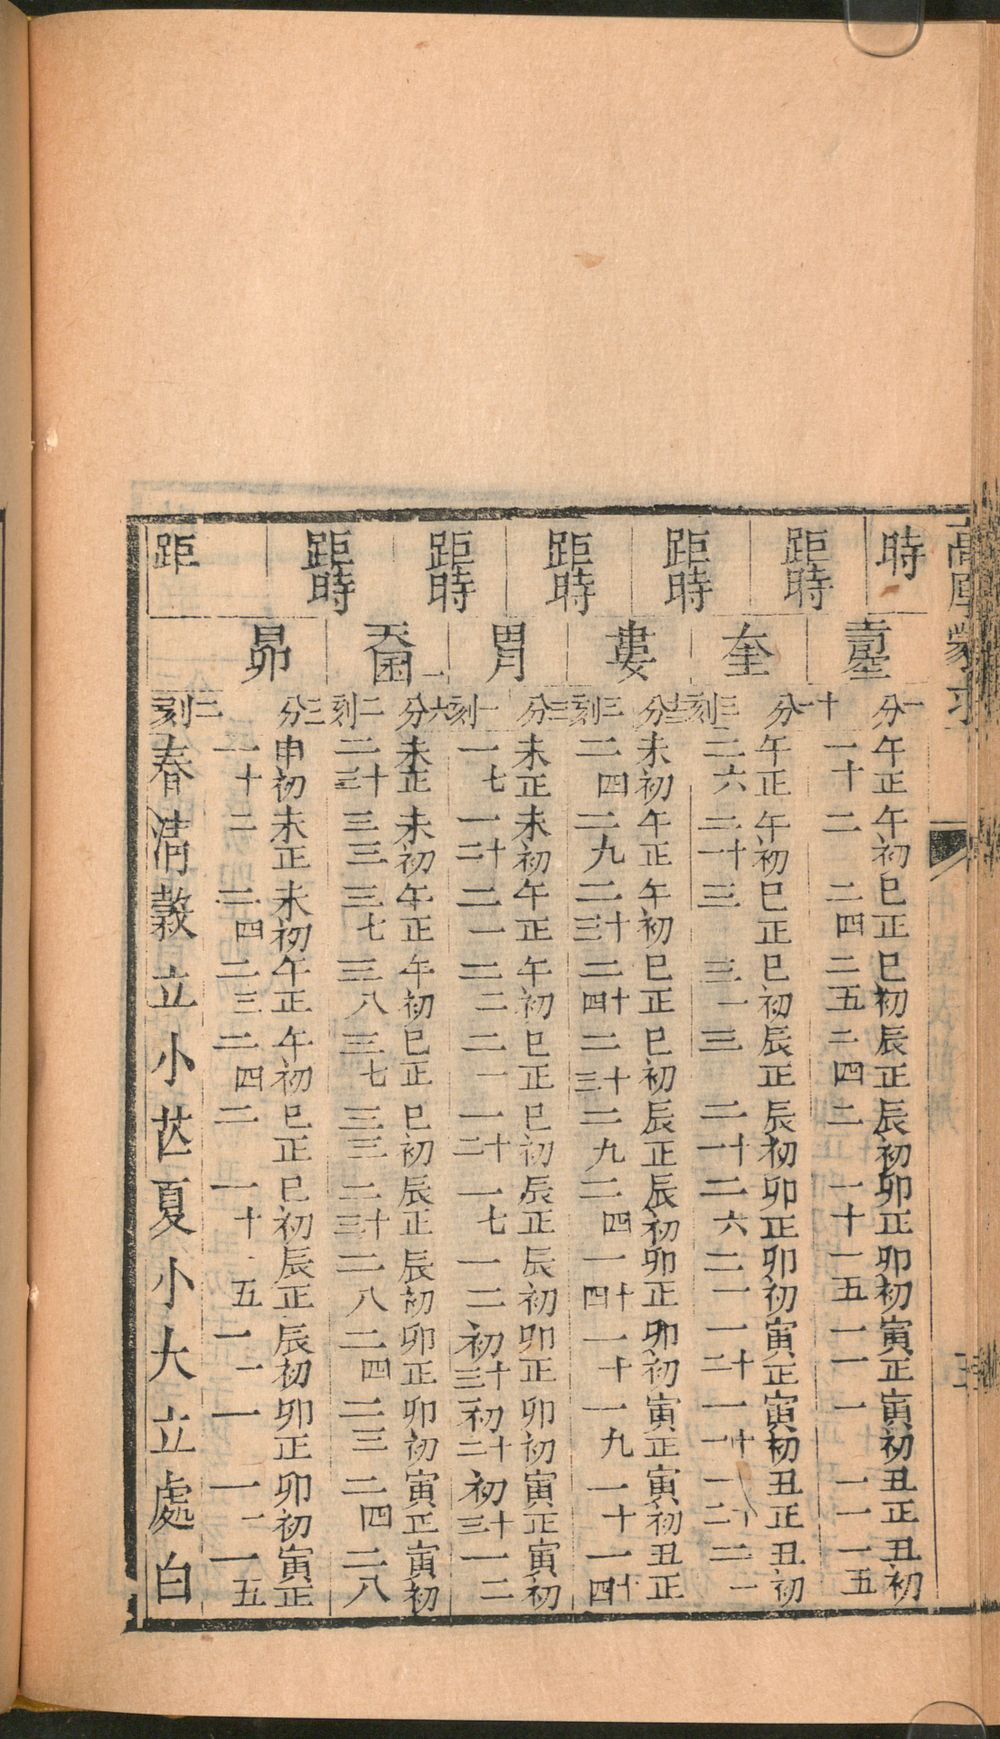 高厚蒙求
時 壁 分一 午正 午初 巳正 巳初 辰正 辰初 卯正 卯初 寅正 寅初 丑正 丑初
十一 一十 二 二四 二五 二四 二 一十 一五 一一 一 一一 一五
距時 奎 分 午正 午初 巳正 巳初 辰正 辰初 卯正 卯初 寅正 寅初 丑正 丑初
刻三 二六 二十一 三 三一 三 二十一 二六 二一 一十二 一十一 一十二 二一
距時 婁 分十三 未初 午正 午初 巳正 巳初 辰正 辰初 卯正 卯初 寅正 寅初 丑正
刻三 二四 二九 二十三 二十四 二十三 二九 二四 一十四 一十 一九 一十 一十四
距時 胃 分三 未正 未初 午正 午初 巳正 巳初 辰正 辰初 卯正 卯初 寅正 寅初
刻一 一七 一十二 二一 二二 二一 一十二 一七 一二 初十三 初十二 初十三 一二
距時 天囷一 分六 未正 未初 午正 午初 巳正 巳初 辰正 辰初 卯正 卯初 寅正 寅初
刻二 二十三 三三 三七 三八 三七 三三 二十三 二八 二四 二三 二四 二八
距時 昴 分三 申初 未正 未初 午正 午初 巳正 巳初 辰正 辰初 卯正 卯初 寅正
二 一十 二 二四 二三 二四 二 一十 五 一一 一 一一 一五
距 刻 春 清 穀 立 小 芒 夏 小 大 立 處 白